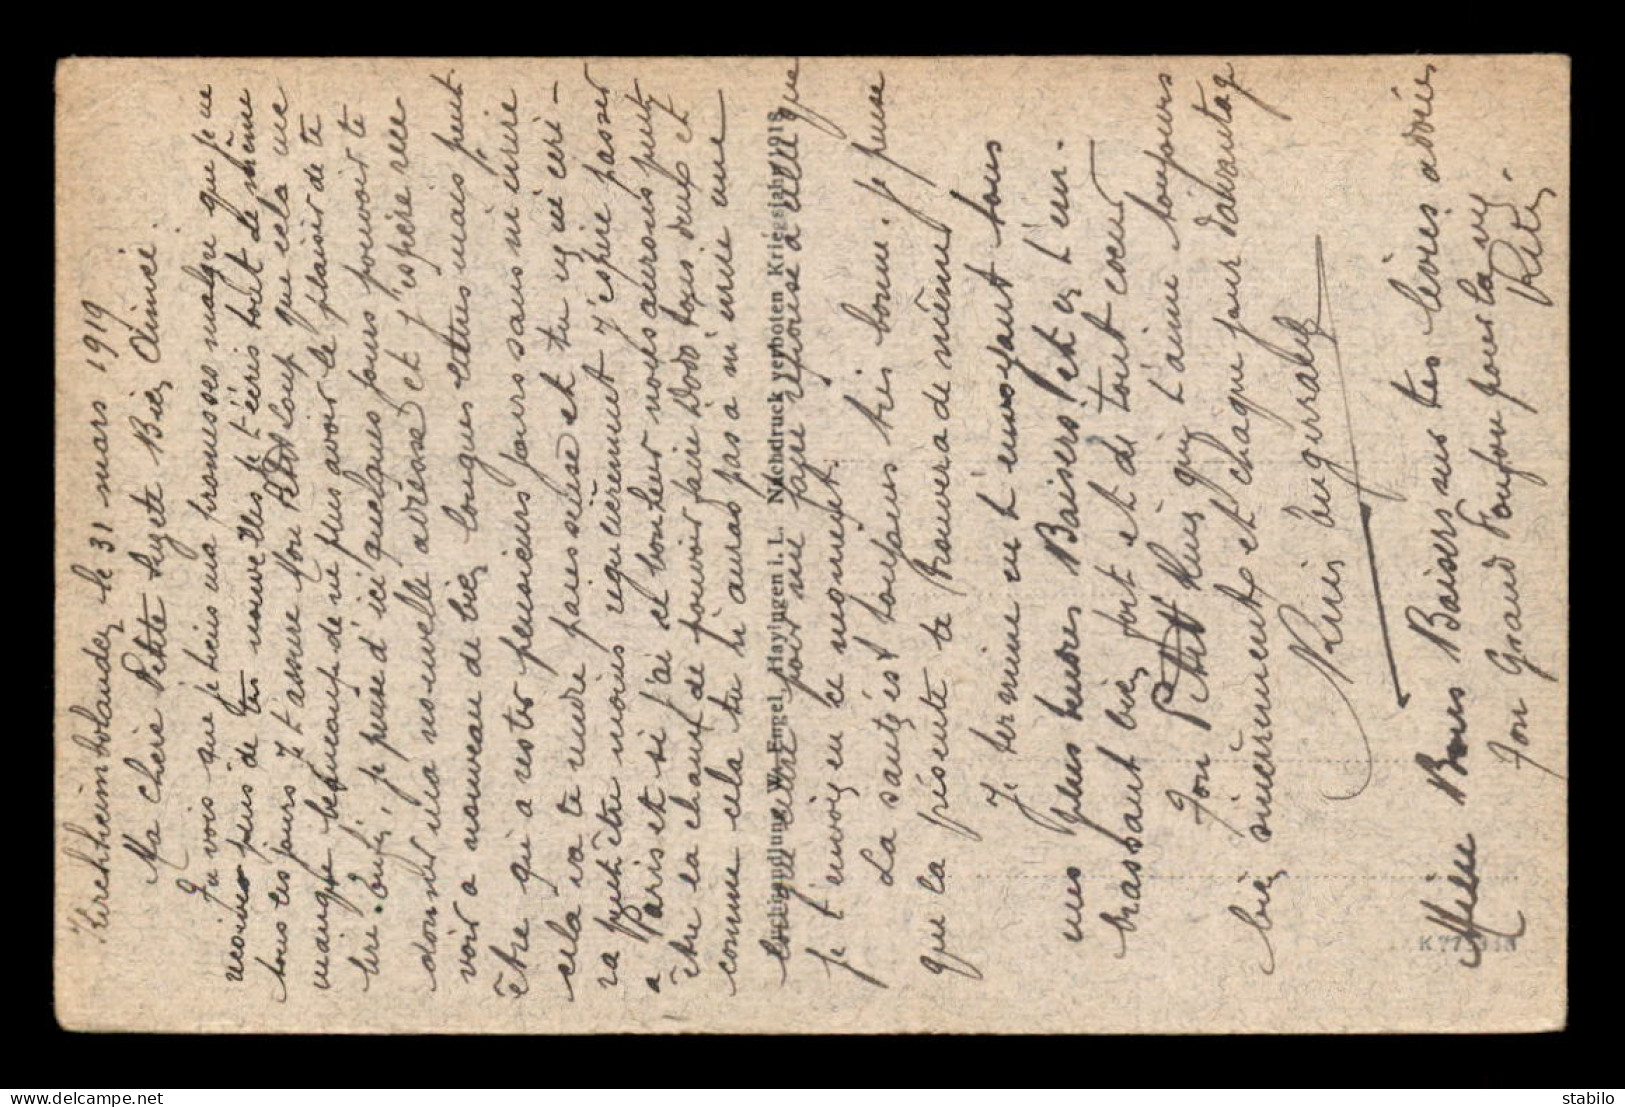 Kirchheimbolanden le 31 mars 1919
Ma chère Petite Bien Aimée.
Tu vois que je tiens ma promesses malgré que je ne
reçois pas de tes nouvelles je t'écris tout de même
tous les jours je t'assure Mon Petit loup que cela me
manque beaucoup de ne plus avoir le plaisir de te
lire. Enfin, je pense d'ici quelques jours pouvoir te
donner ma nouvelle adresse et j'espère rece
voir a nouveau de bien longues lettres mais peut
être qu'a rester plusieurs jours sans m'écrire
cela va te rendre paresseuse et tu
va peut être moins régulièrement j'espère passer
a Paris et si j'ai ce bonheur nous aurons peut
être la chance de pouvoir faire Dodo tous deux et
comme cela tu n'auras pas a m'écrire une
longue lettre pour me faire réponse a celle que
je t'envoie en ce moment.
La santé est toujours très bonne. je pense
que la présente te trouvera de même
Je termine en t'envoyant tous
mes plus tendres Baisers et en t'em-
brassant bien fort et de tout coeur
Ton Petit qui t'aime toujours
bien sincèrement et chaque jour davantage
Mille Bons Baisers sur tes lèvres adorées
Ton Grand Foufou pour la vie
Buchhandlung W. Engel, Hayingen i. L. Nachdruck verboten Kriegsjahr 1918
stabilo